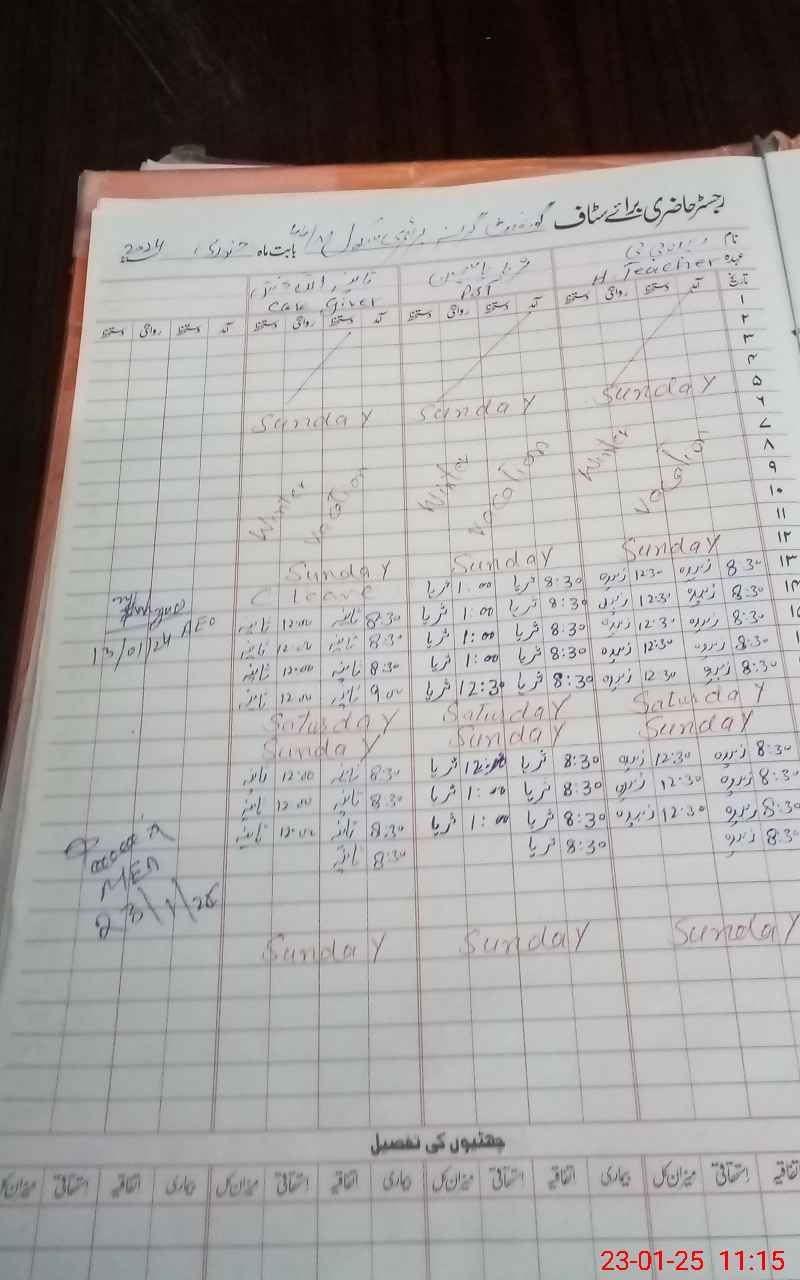 رجسٹر حاضری برائے سٹاف گورنمنٹ گرلز بابت ماہ جنوری 2024
نام
عہدہ H. Teacher PST Care Giver
تاریخ آمد دستخط روانگی دستخط آمد دستخط روانگی دستخط آمد دستخط روانگی دستخط آمد دستخط روانگی دستخط
۱
۲
۳
۴
۵ Sunday Sunday Sunday
۶
۷
۸ Winter Vacation Winter Vacation Winter Vacation
۹
۱۰
۱۱
۱۲ Sunday Sunday Sunday
۱۳ 8:30 زبیدہ 12:30 زبیدہ 8:30 ثریا 1:00 ثریا C leave
۱۴ 8:30 زبیدہ 12:30 زبیدہ 8:30 ثریا 1:00 ثریا 8:30 ثانیہ 12:00 ثانیہ
8:30 زبیدہ 12:30 زبیدہ 8:30 ثریا 1:00 ثریا 8:30 ثانیہ 12:00 ثانیہ AEO
8:30 زبیدہ 12:30 زبیدہ 8:30 ثریا 1:00 ثریا 8:30 ثانیہ 12:00 ثانیہ 13/01/24
8:30 زبیدہ 12:30 زبیدہ 8:30 ثریا 12:30 ثریا 9:00 ثانیہ 12:00 ثانیہ
Saturday Saturday Saturday
Sunday Sunday Sunday
8:30 زبیدہ 12:30 زبیدہ 8:30 ثریا ثریا 8:30 ثانیہ 12:00 ثانیہ
8:30 زبیدہ 12:30 زبیدہ 8:30 ثریا 1:00 ثریا 8:30 ثانیہ 12:00 ثانیہ
8:30 زبیدہ 12:30 زبیدہ 8:30 ثریا 1:00 ثریا 8:30 ثانیہ 12:00 ثانیہ
8:30 زبیدہ 8:30 ثریا 8:30 ثانیہ
MEA
23/1/25
Sunday Sunday Sunday
چھٹیوں کی تفصیل
اتفاقیہ استحقاقی میزان کل بیماری اتفاقیہ استحقاقی میزان کل بیماری اتفاقیہ استحقاقی میزان کل بیماری اتفاقیہ استحقاقی میزان کل
23-01-25 11:15